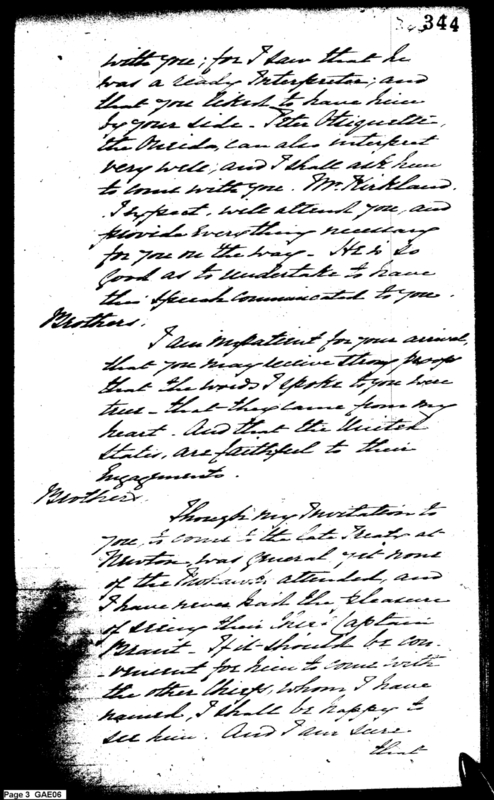 344
with you; for I saw that he
was a ready Interpreter; and
that you liked to have him
by your side - Peter Otsiquette,
the Oneida, can also interpret
very well; and I shall ask him
to come with you. Mr. Kirkland.
I expect, will attend you, and
provide Everything necessary
for you on the way - He is so
good as to undertake to have
this Speech Communicated to you.
Brothers.
I am impatient for your arrival,
that you may receive strong proofs
that the words I spoke to you were
true - that they came from my
heart. And that the United
States, are faithful to their
Engagements.
Brothers
Though my Invitation to
you, to come to the late Treaty at
Newton, was General, yet none
of the Mohawks attended, and
I have never had the pleasure
of seeing their Chief Captain
Brant. If it should be con-
-venient for him to come with
the other Chiefs, whom I have
named, I shall be happy to
see him. And I am sure
that
Page 3 GAE06